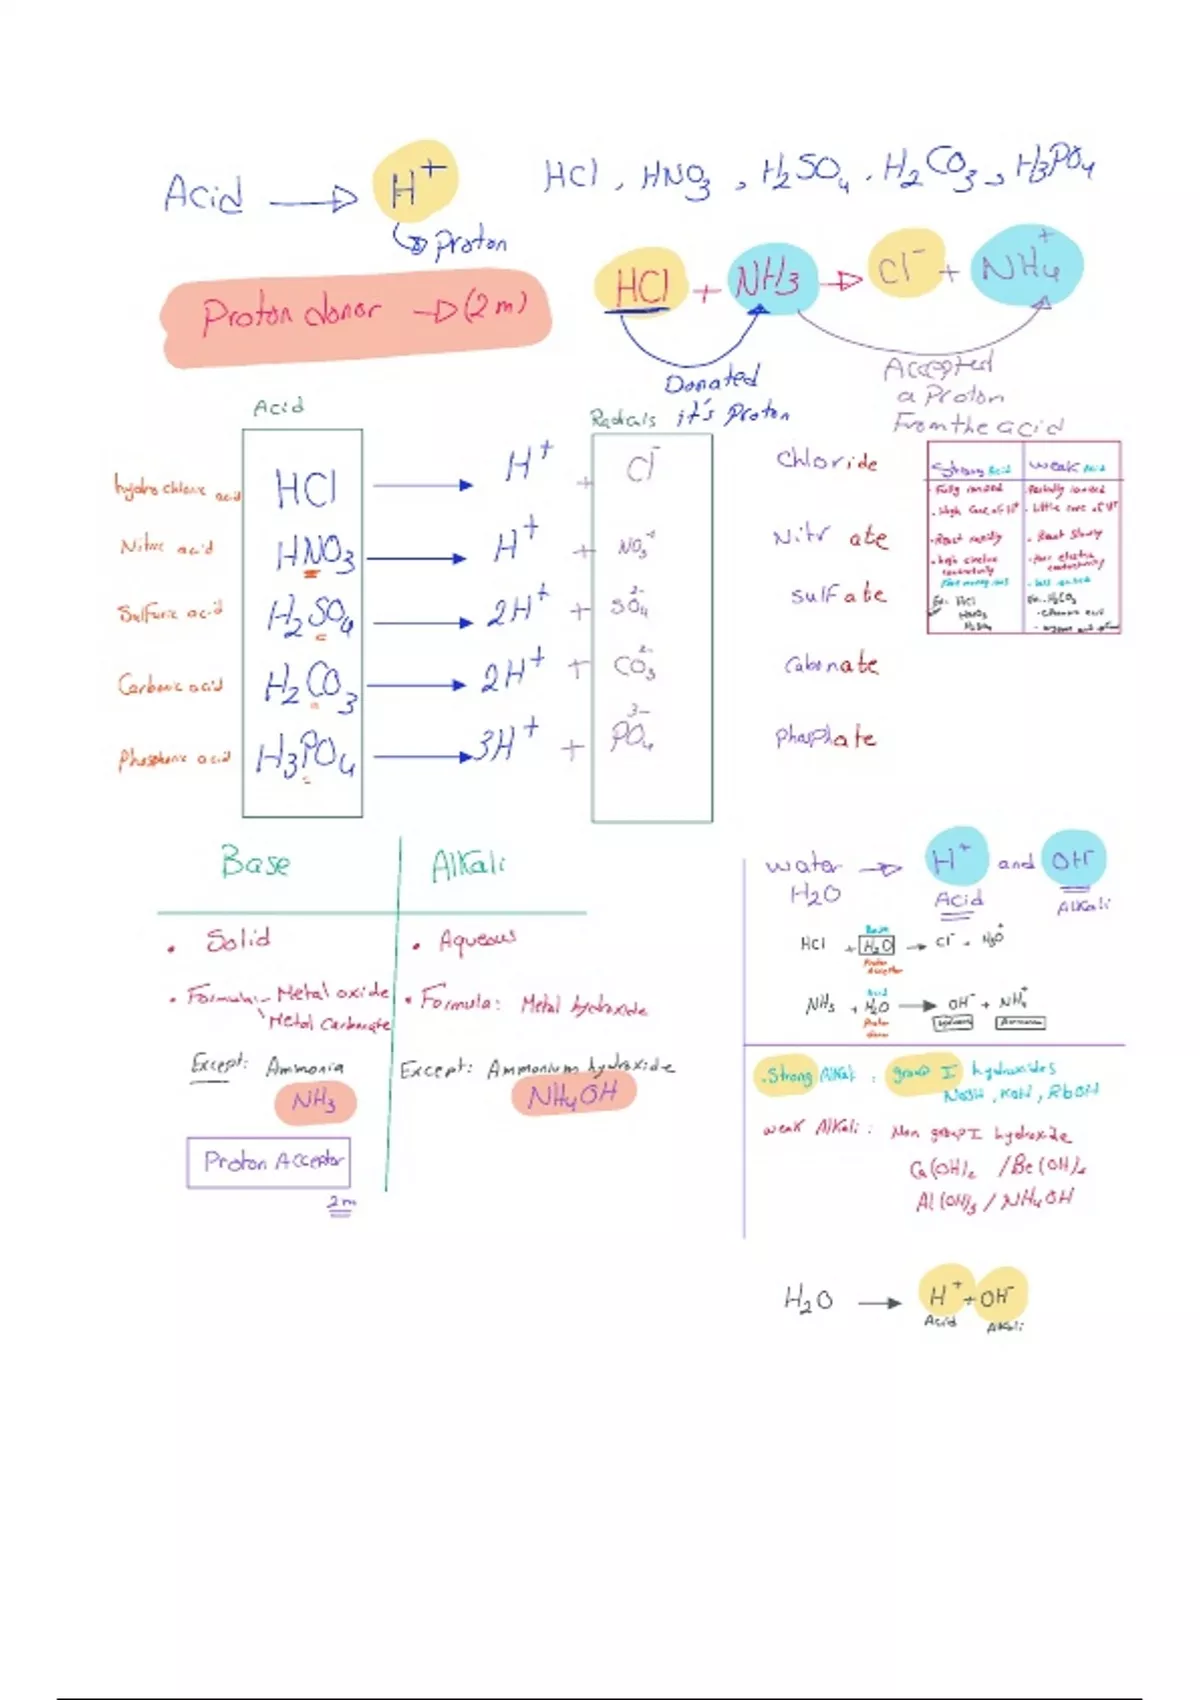 Acid → H⁺
Proton
HCl , HNO₃ , H₂SO₄ , H₂CO₃ , H₃PO₄
Proton donor → (2m)
HCl + NH₃ → Cl⁻ + NH₄⁺
Donated
it's Proton
Accepted
a Proton
From the acid
Acid
Radicals
hydrochloric acid HCl → H⁺ + Cl⁻ Chloride
Nitric acid HNO₃ → H⁺ + NO₃⁻¹ Nitrate
Sulfuric acid H₂SO₄ → 2H⁺ + SO₄²⁻ sulfate
Carbonic acid H₂CO₃ → 2H⁺ + CO₃²⁻ Cabonate
Phosphoric acid H₃PO₄ → 3H⁺ + PO₄³⁻ phosphate
Strong Acid weak Acid
· Fully ionized · Partially ionized
· High Conc of H⁺ · Little conc of H⁺
· React rapidly · React Slowly
· High electric conductivity · electric conductivity
Ex: HCl Ex: H₂CO₃
HNO₃
H₂SO₄
Base Alkali
• Solid • Aqueous
• Formula:- Metal oxide • Formula: Metal hydroxide
Metal Carbonate
Except: Ammonia Except: Ammonium hydroxide
NH₃ NH₄OH
Proton Acceptor
2m
water → H⁺ and OH⁻
H₂O Acid Alkali
Base
HCl + H₂O → Cl⁻ + H₃O⁺
Proton
Acceptor
Acid
NH₃ + H₂O → OH⁻ + NH₄⁺
Proton
· Strong Alkali : group I hydroxides
NaOH , KOH , RbOH
weak Alkali : Non group I hydroxide
Ca(OH)₂ / Be(OH)₂
Al(OH)₃ / NH₄OH
H₂O → H⁺ + OH⁻
Acid Alkali